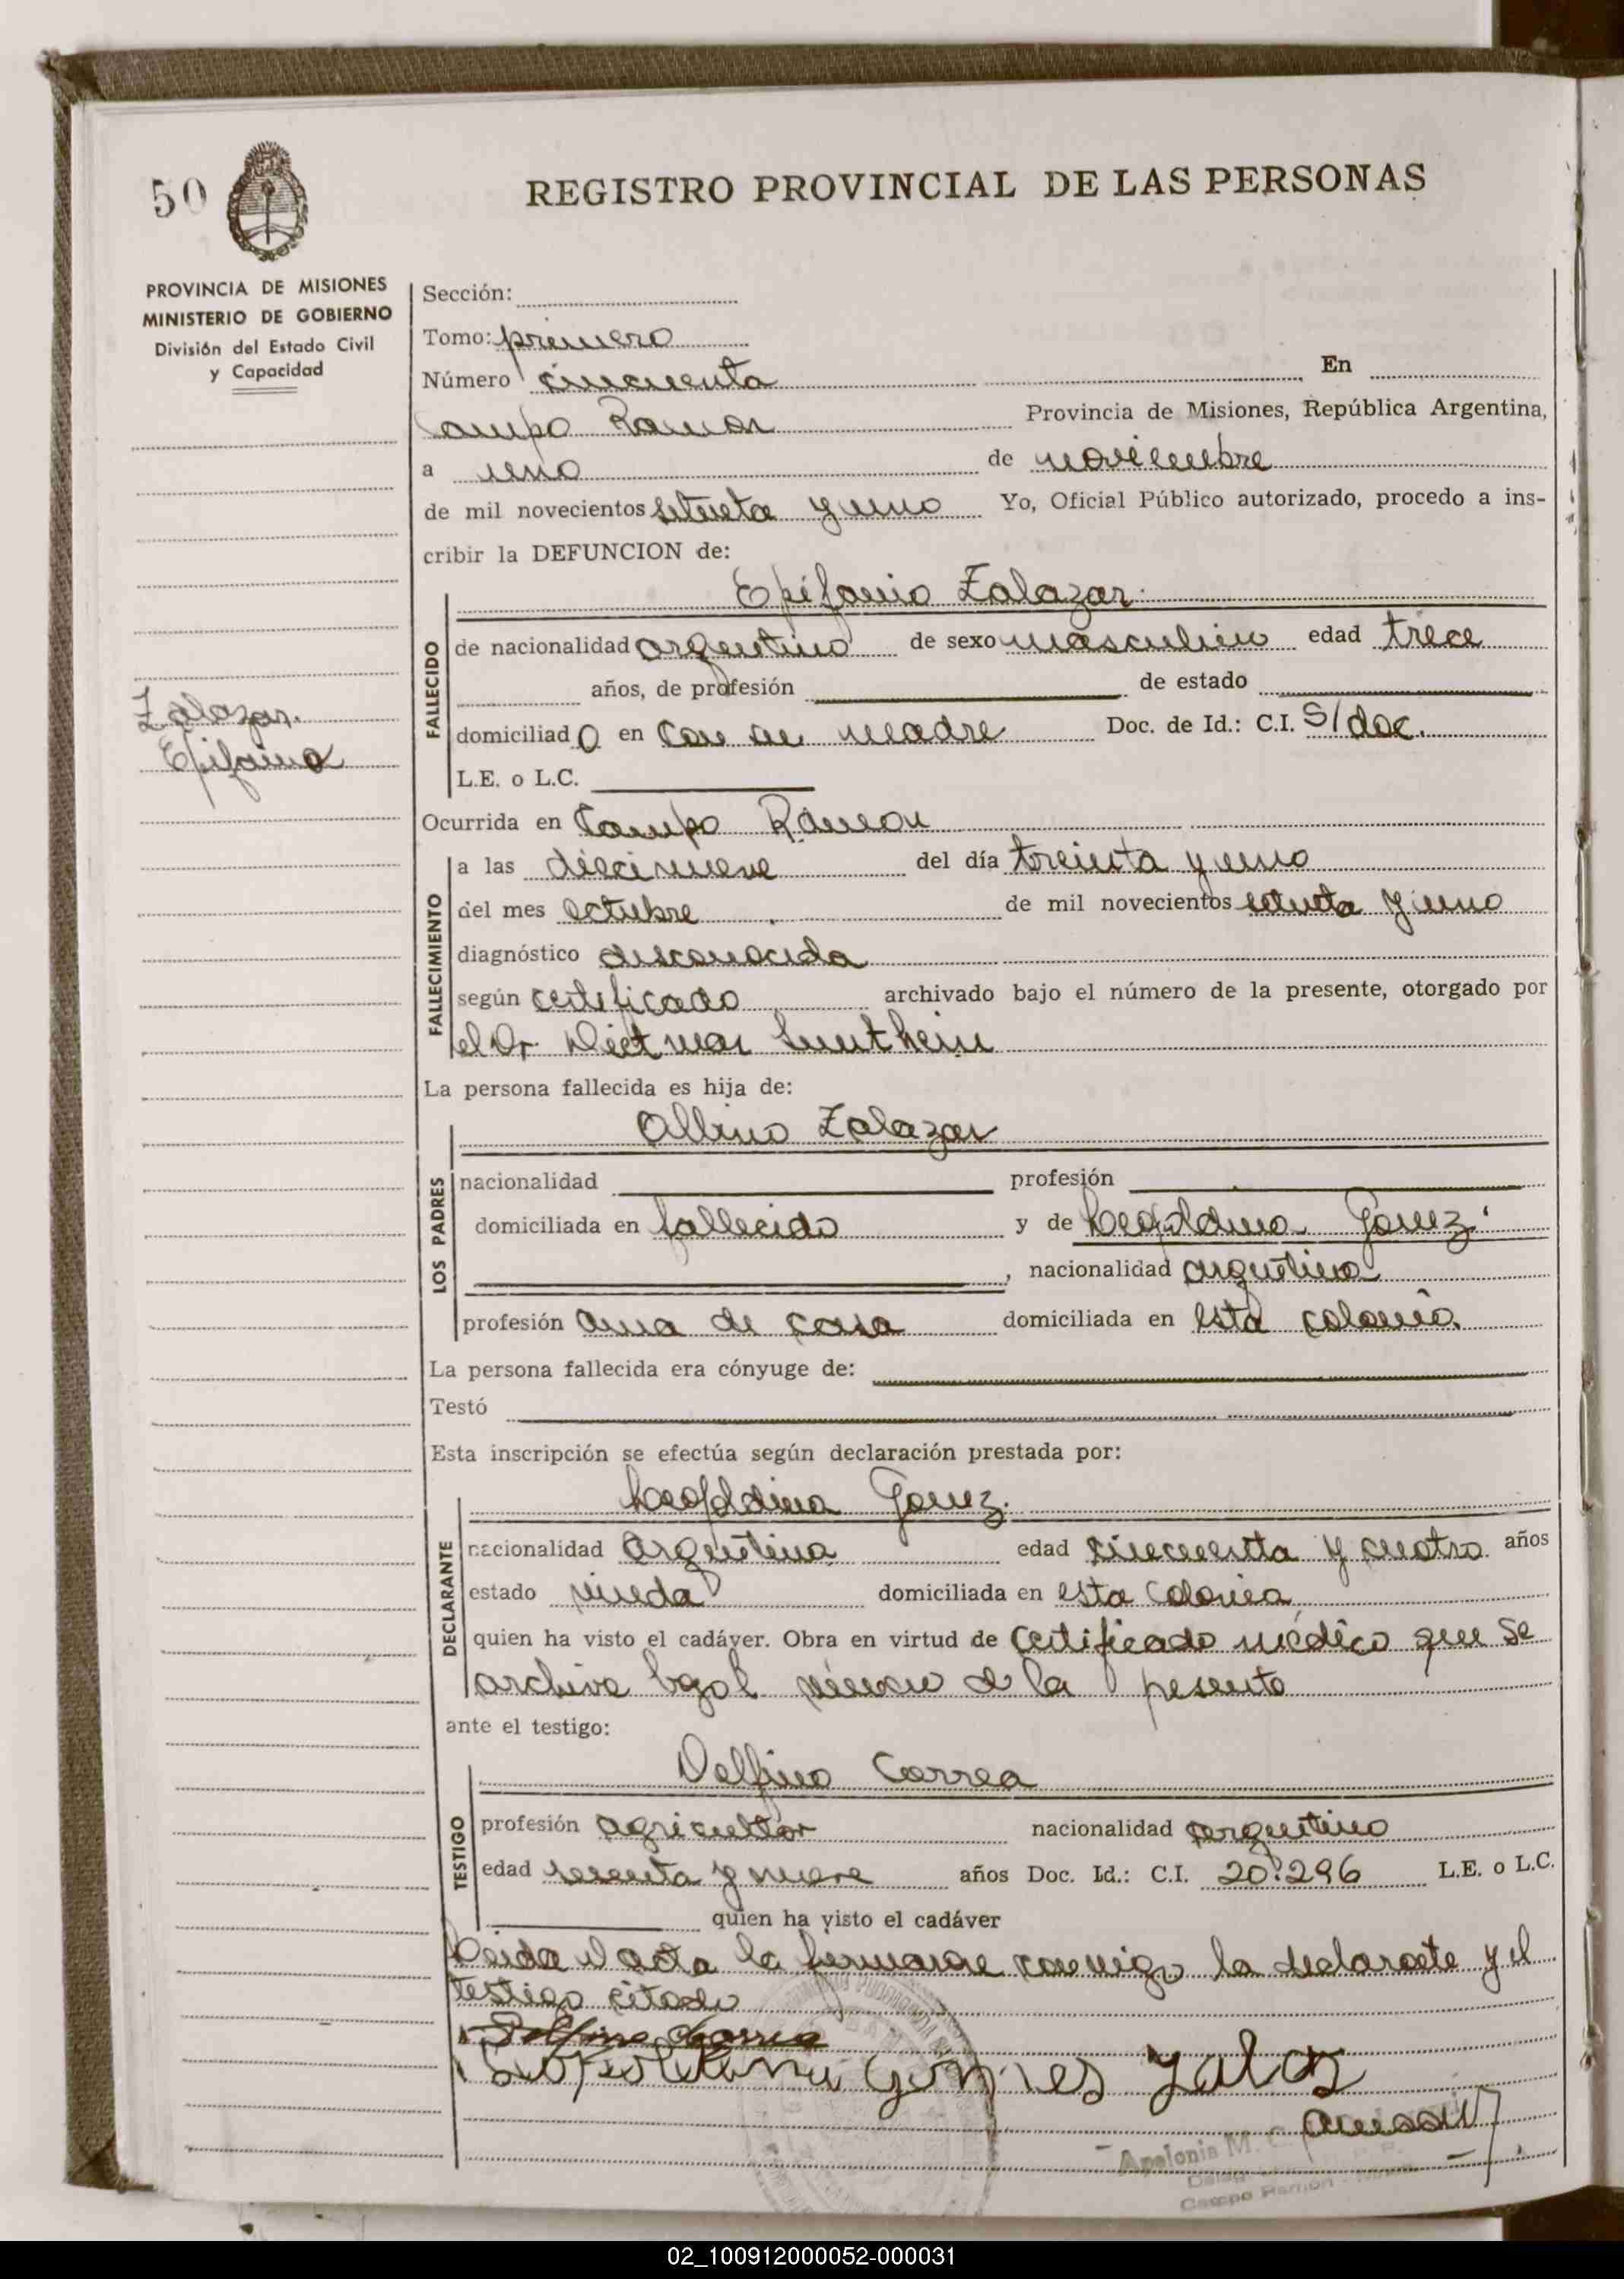 50
REGISTRO PROVINCIAL DE LAS PERSONAS
PROVINCIA DE MISIONES
MINISTERIO DE GOBIERNO
División del Estado Civil
y Capacidad
Zalazar.
Epifanio
Sección:
Tomo: primero
Número cincuenta En
Campo Ramon Provincia de Misiones, República Argentina,
a uno de noviembre
de mil novecientos setenta y uno Yo, Oficial Público autorizado, procedo a ins-
cribir la DEFUNCION de:
Epifanio Zalazar.
FALLECIDO
de nacionalidad argentino de sexo masculino edad trece
años, de profesión de estado
domiciliado en con su madre Doc. de Id.: C.I. S/doc.
L.E. o L.C.
Ocurrida en Campo Ramon
FALLECIMIENTO
a las diecinueve del día treinta y uno
del mes octubre de mil novecientos setenta y uno
diagnóstico desconocida
según certificado archivado bajo el número de la presente, otorgado por
el Dr Dietmar
La persona fallecida es hija de:
Albino Zalazar
LOS PADRES
nacionalidad profesión
domiciliada en fallecido y de Leopoldina Gomez.
, nacionalidad argentina
profesión ama de casa domiciliada en esta colonia.
La persona fallecida era cónyuge de:
Testó
Esta inscripción se efectúa según declaración prestada por:
Leopoldina Gomez.
DECLARANTE
nacionalidad Argentina edad cincuenta y cuatro años
estado viuda domiciliada en esta Colonia
quien ha visto el cadáver. Obra en virtud de certificado médico que se
archiva bajol número de la presente
ante el testigo:
Delfino Correa
TESTIGO
profesión agricultor nacionalidad argentino
edad sesenta y nueve años Doc. Id.: C.I. 20.296 L.E. o L.C.
quien ha visto el cadáver
Leida el acta la firmaron conmigo la declarante y el
testigo citado
Delfino Correa
Apolonia M. C.
Campo Ramon
02_100912000052-000031